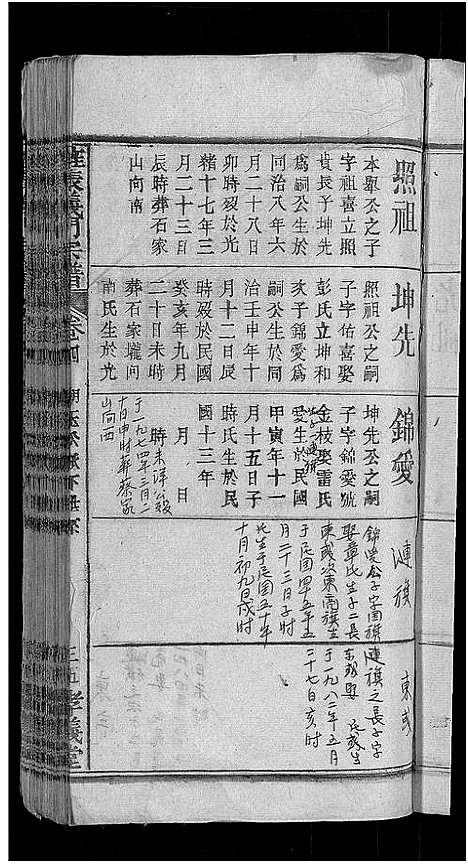 照祖
本舉公之子
字祖喜立照
貴長子坤先
爲嗣公生於
同治八年六
月二十八日
卯時歿於光
緒十七年三
月二十三日
辰時葬石家
山向南
坤先
照祖公之嗣
子字佑喜娶
彭氏立坤和
次子錦愛爲
嗣公生於同
治壬申年十
月十二日辰
時歿於民國
癸亥年九月
二十日未時
葬石家壠向
南氏生於光
錦愛
坤先公之嗣
子字錦愛號
金枝娶雷氏
愛生於民國
甲寅年十一
月十五日子
時氏生於民
國十三年
月　日
時未詳公歿
于一九七四年三月二
十日申時葬蔡家
山向西
漣旗
錦愛公子字国旗
娶章氏生子二長
東或次東亮旗生
于民国四十五年五
月二十三日子时
氏生于民国五十年
十月初九日戌时
東或
漣旗之長子字
东　娶　氏或生
于一九八二年五月
二十七日亥时
義門宗譜
卷四
三五
孝義堂